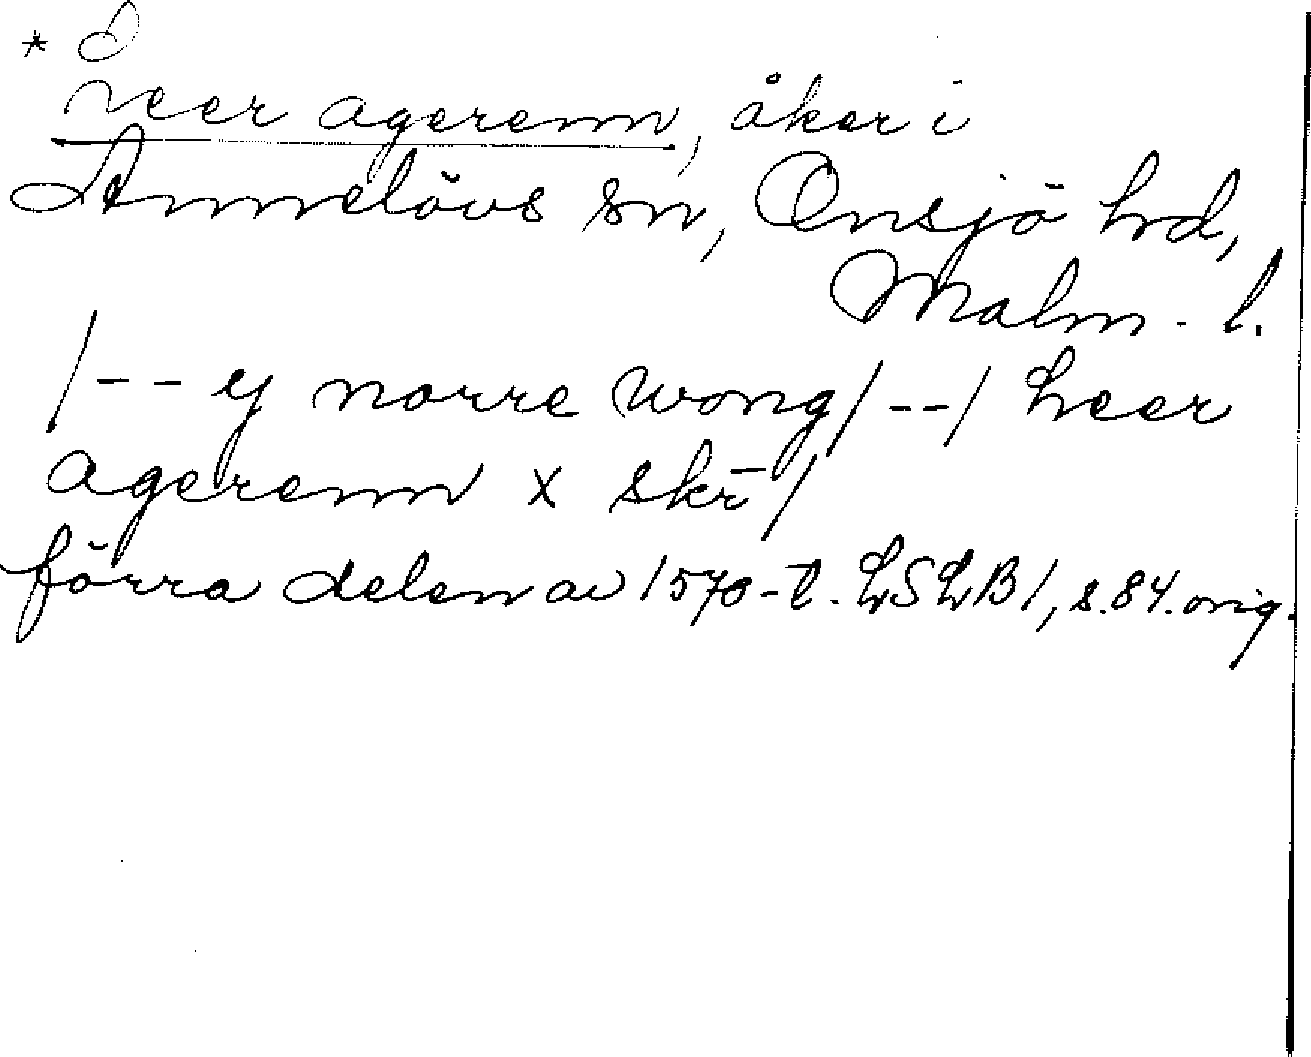 * 
heer agerenn, åker i
Annelövs sn, Onsjö hd,
Malm. l.
/-- y norre wong/--/ heer
agerenn x skr̄/
förra delen av 1570-t. LSLB1, s.84. orig.